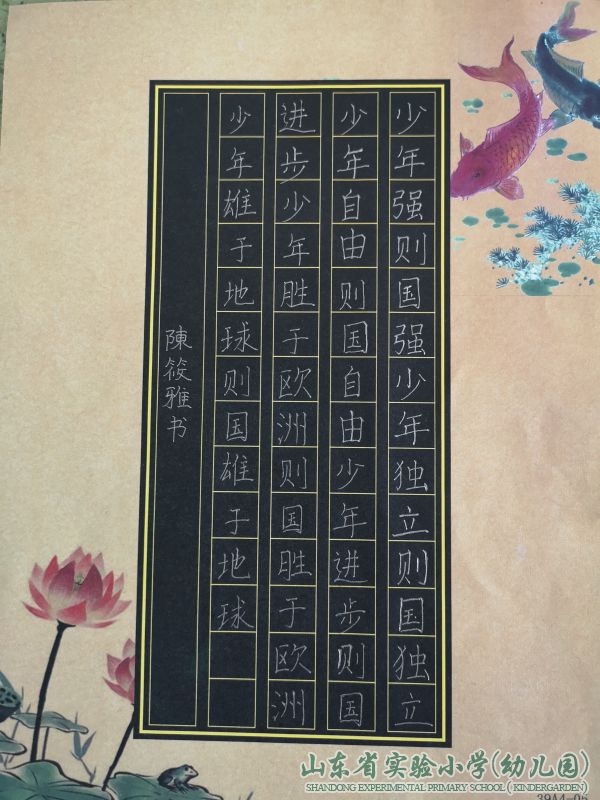 少年强则国强少年独立则国独立
少年自由则国自由少年进步则国
进步少年胜于欧洲则国胜于欧洲
少年雄于地球则国雄于地球
陳筱雅书
山东省实验小学(幼儿园)
SHANDONG EXPERIMENTAL PRIMARY SCHOOL ( KINDERGARDEN)
39A4-05